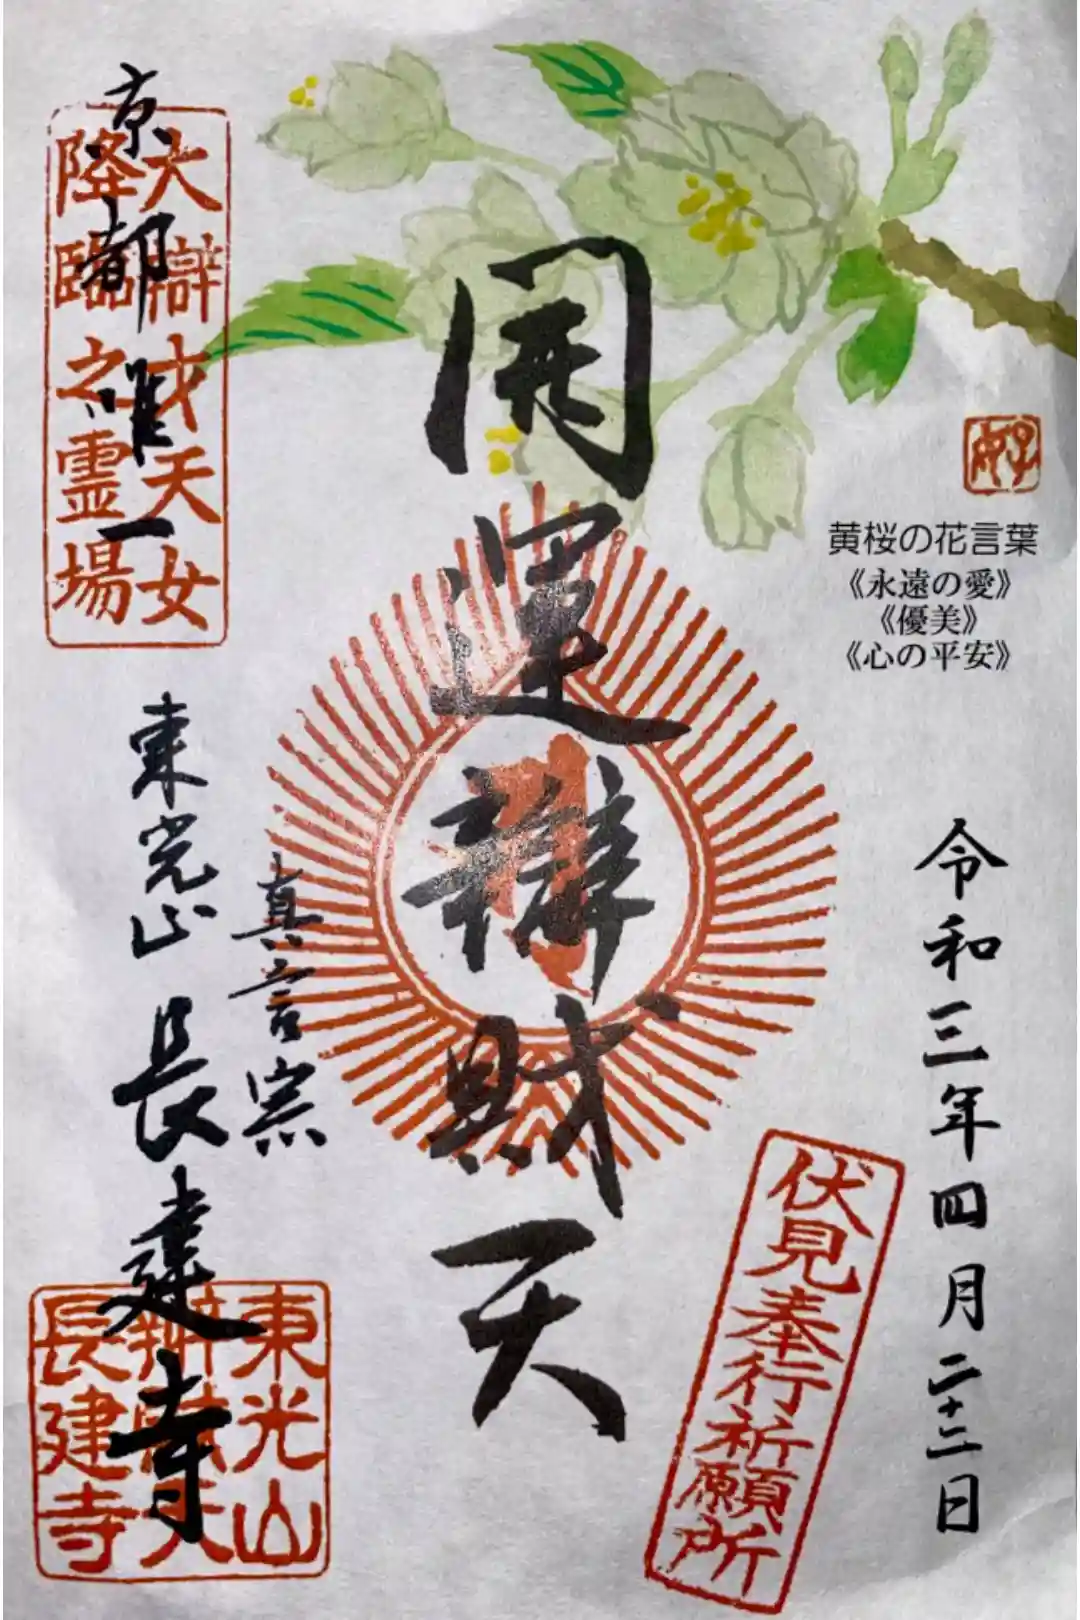 好
黄桜の花言葉
《永遠の愛》
《優美》
《心の平安》
令和三年四月二十二日
伏見奉行祈願所
開運辨財天
真言宗
京都唯一
東光山 長建寺
大辯才天女
降臨之霊場
東光山
辨財天
長建寺